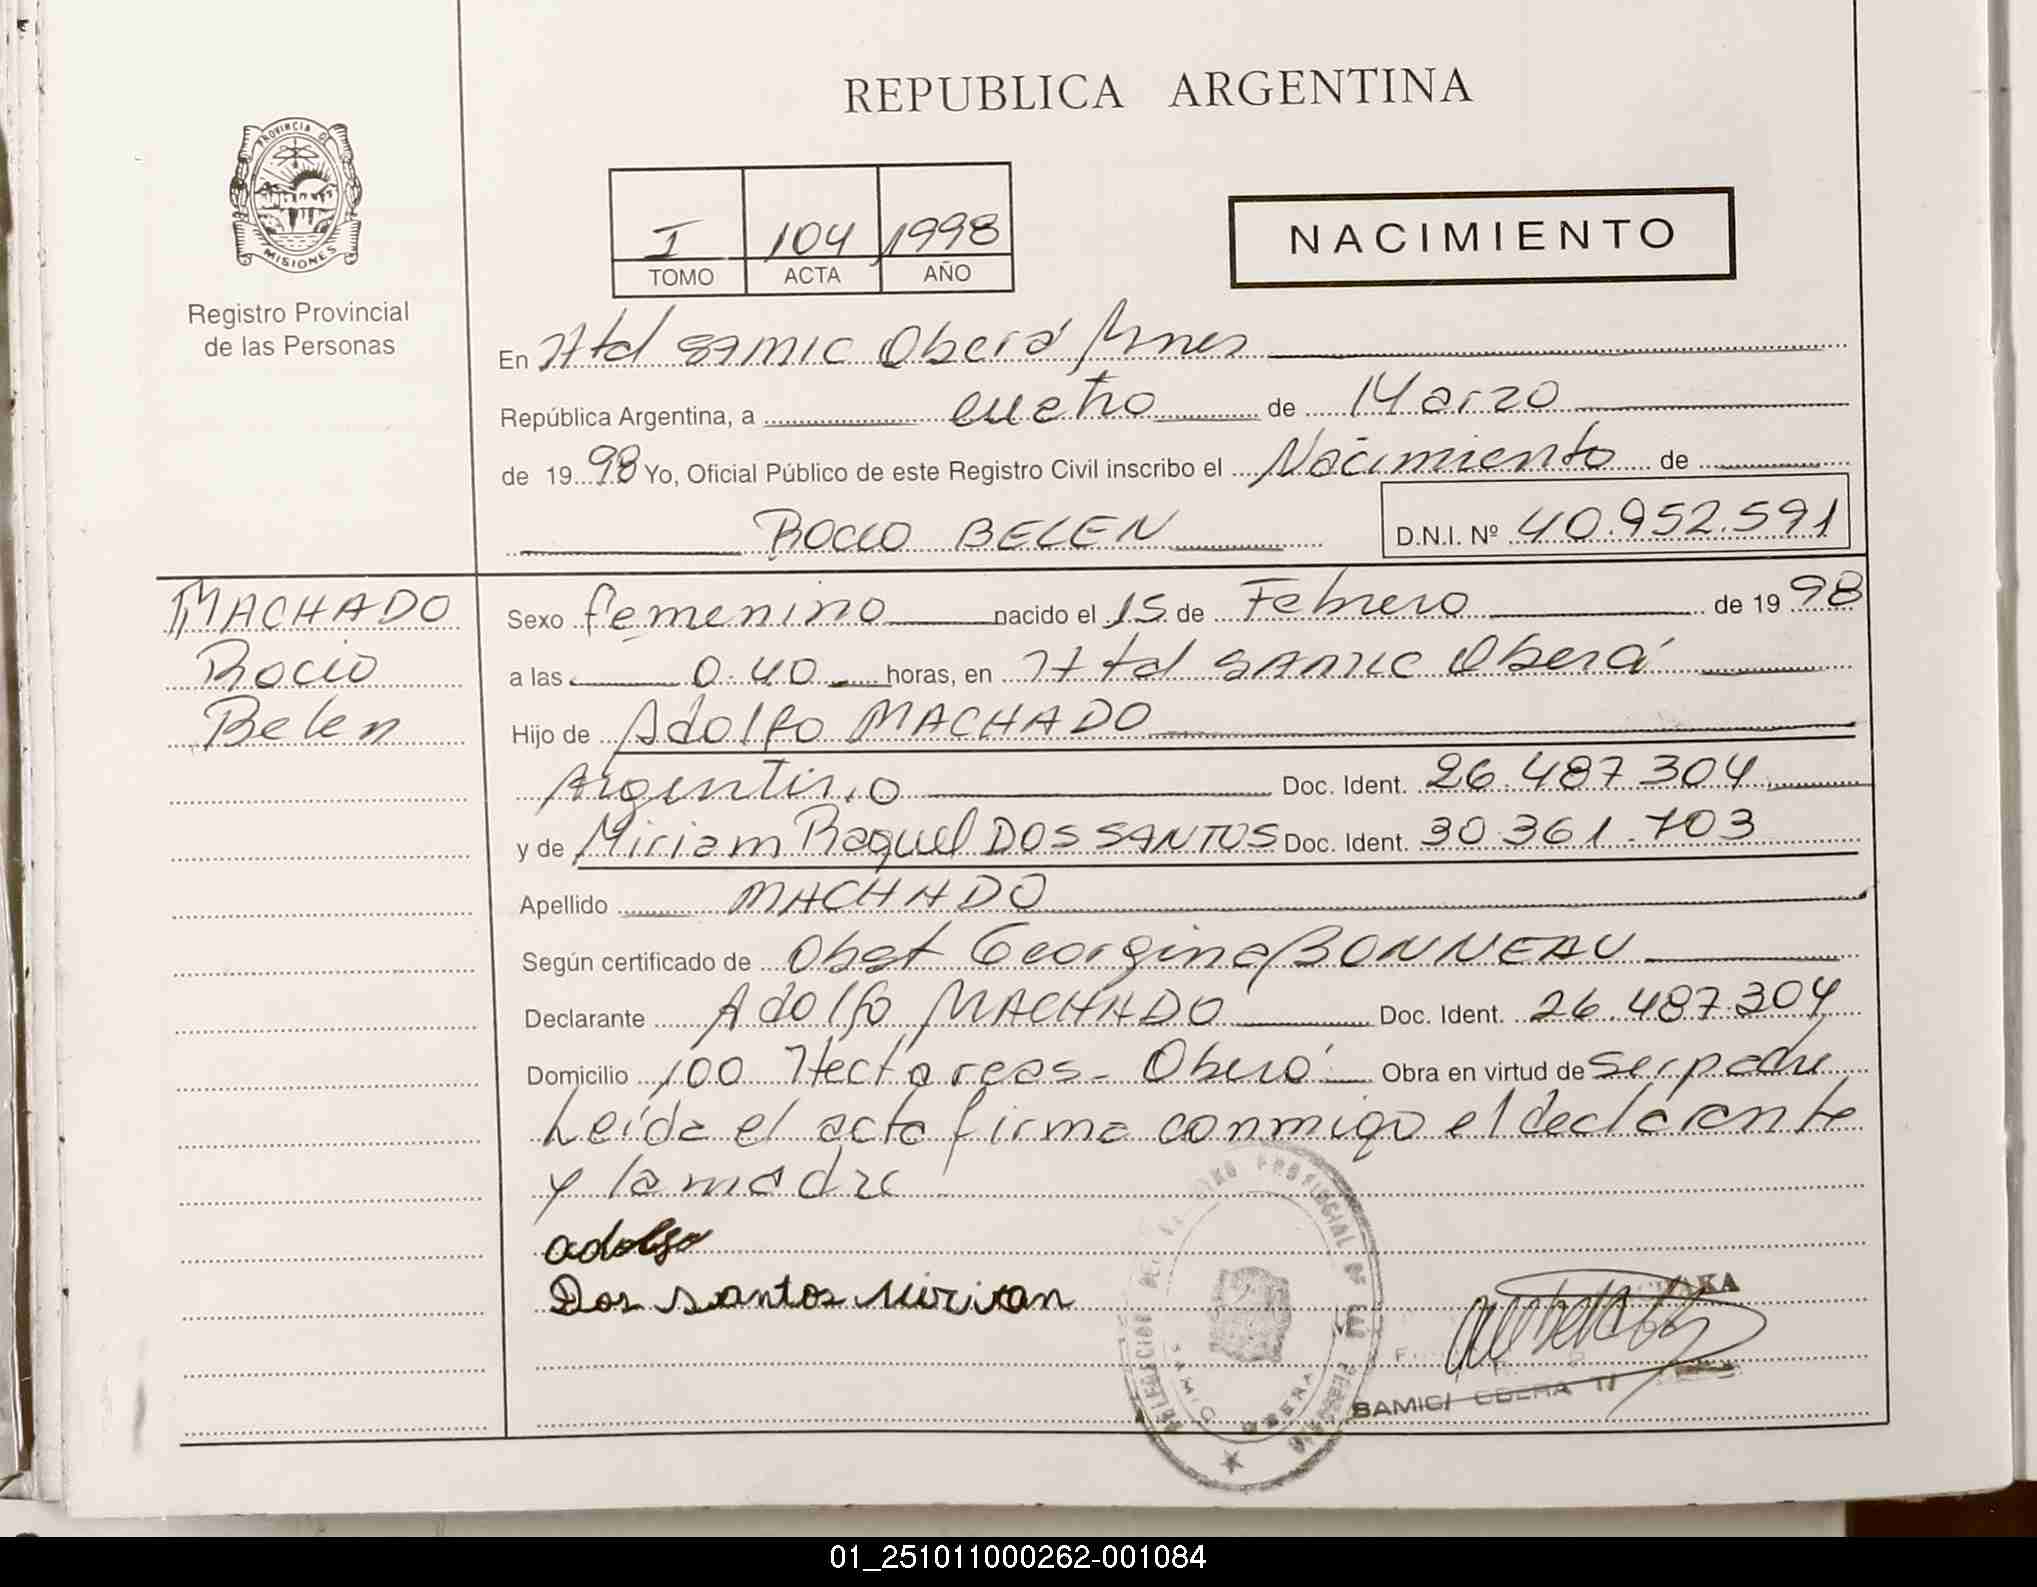 REPUBLICA ARGENTINA
PROVINCIA DE
MISIONES
Registro Provincial
de las Personas
I 104 1998
TOMO ACTA AÑO
NACIMIENTO
En Htal SAMIC Oberá Mnes
República Argentina, a cuatro de Marzo
de 19 98 Yo, Oficial Público de este Registro Civil inscribo el Nacimiento de
ROCIO BELEN D.N.I. Nº 40.952.591
MACHADO
Rocio
Belen
Sexo femenino nacido el 15 de Febrero de 19 98
a las 0.40 horas, en Htal SAMIC Oberá
Hijo de Adolfo MACHADO
Argentino Doc. Ident. 26.487.304
y de Miriam Raquel DOS SANTOS Doc. Ident. 30.361.703
Apellido MACHADO
Según certificado de Obst Georgina BONNEAU
Declarante Adolfo MACHADO Doc. Ident. 26.487.304
Domicilio 100 Hectareas - Oberá Obra en virtud de ser padre
Leída el acta firma conmigo el declarante
y la madre
adolfo
Dos santos Miriam
PROVINCIAL DE
SAMIC OBERA
SAMIC/ OBERA
01_251011000262-001084